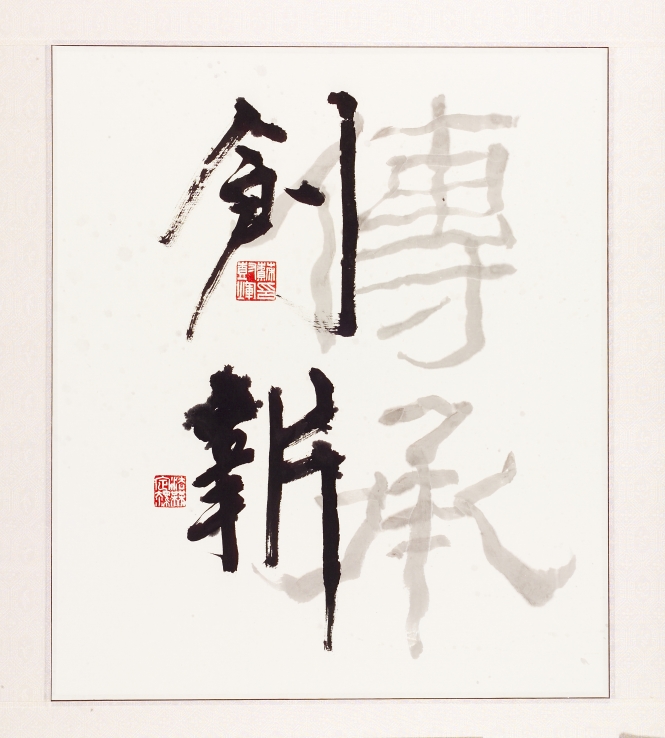 傳承
創新